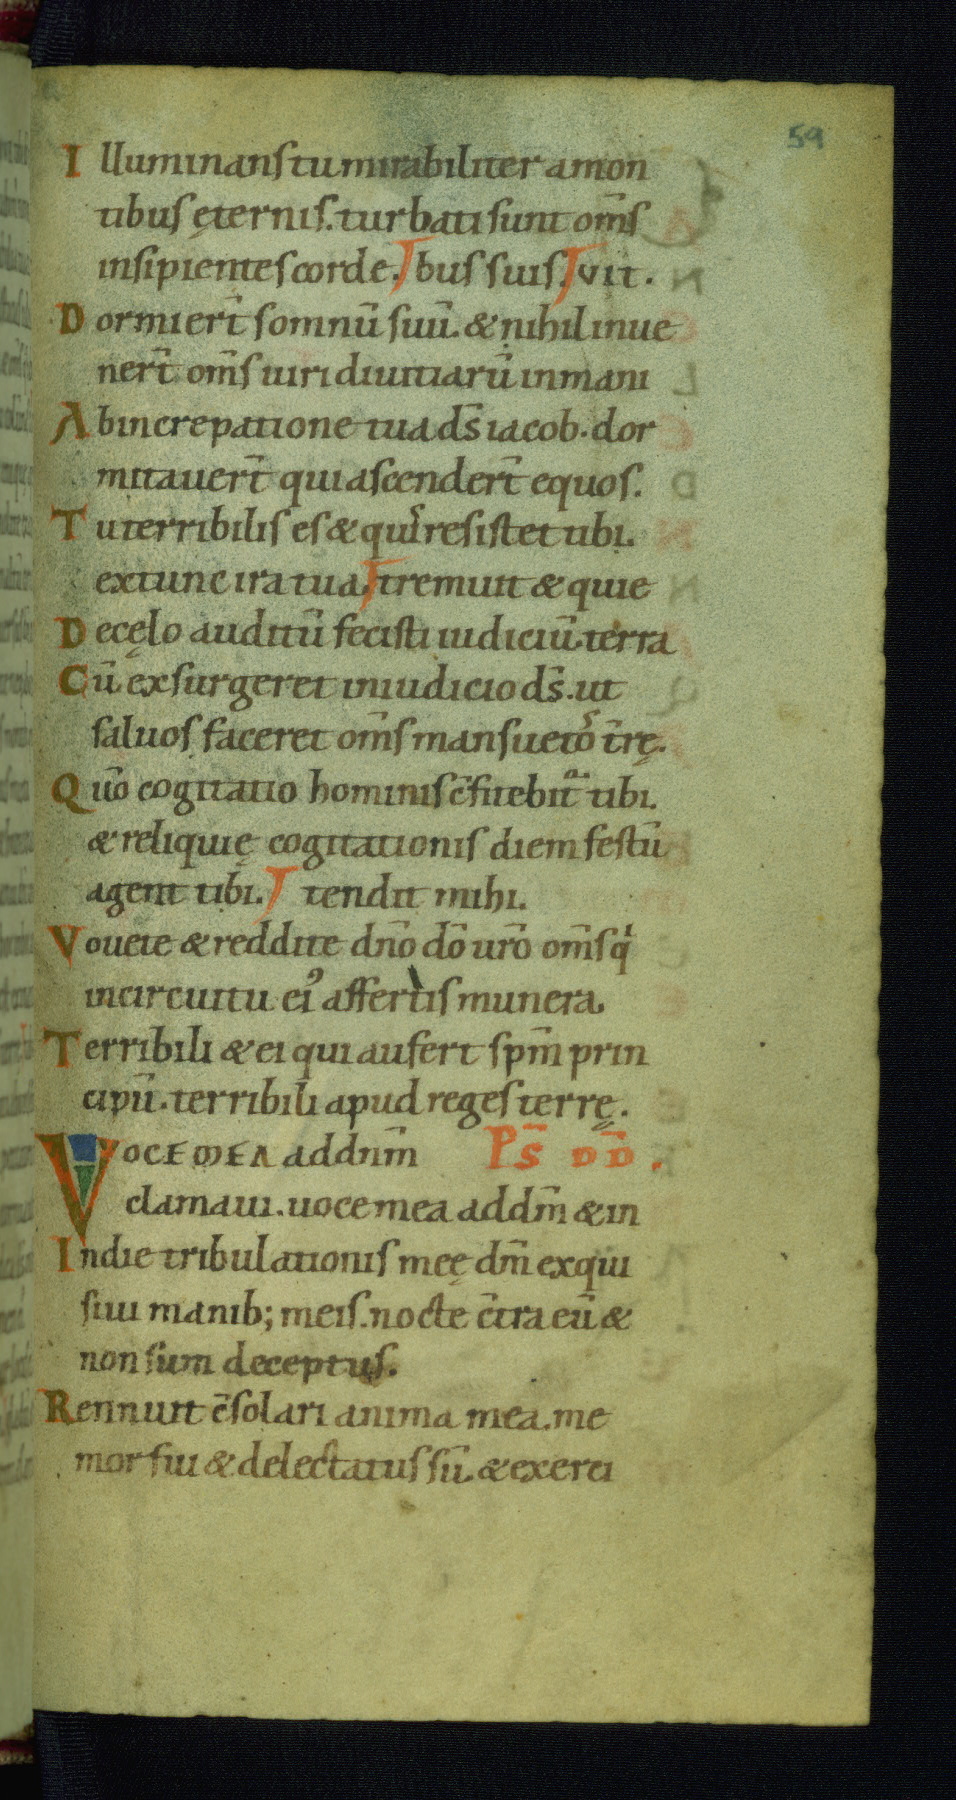 59
Illuminans tu mirabiliter a mon
tibus ęternis. turbati sunt om̄s
insipientes corde. bus suis. vit.
Dormier̄t somnū suū. & nihil inue
ner̄t om̄s uiri diuitiarū in mani
Ab increpatione tua d̄s iacob. dor
mitauer̄t qui ascender̄t equos.
Tu terribilis es & quis resistet tibi.
ex tunc ira tua. tremuit & quie
De cęlo auditū fecisti iudiciū. terra
Cū exsurgeret in iudicio d̄s. ut
saluos faceret om̄s mansuetos t̄rę.
Quō cogitatio hominis c̄fitebit̄ tibi.
& reliquię cogitationis diem festū
agent tibi. tendit mihi.
Vouete & reddite dn̄o dō ur̄o om̄s q
in circuitu ei᾽ affertis munera.
Terribili & ei qui aufert sp̄m prin
cipū. terribili apud reges terrę.
VOCE MEA ad dn̄m P̄S D̄D̄.
clamaui. uoce mea ad dm̄ & in
In die tribulationis meę dm̄ exqui
siui manib; meis. nocte c̄tra eū &
non sum deceptus.
Rennuit c̄solari anima mea. me
mor fui & delectatus sū. & exerci